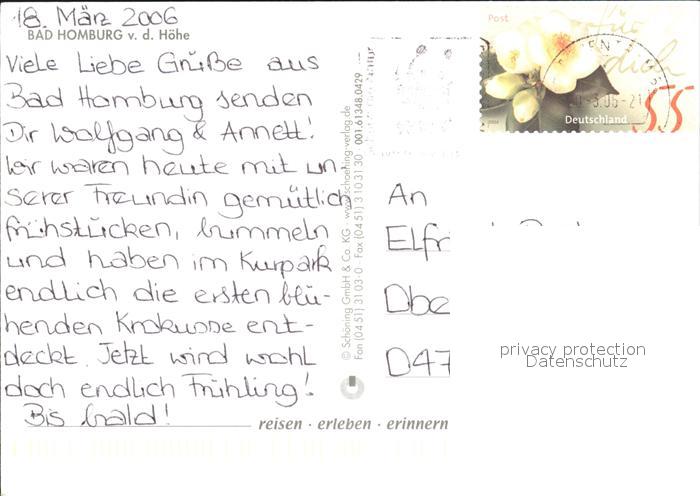 18. März 2006
BAD HOMBURG v. d. Höhe
Viele Liebe Grüße aus
Bad Homburg senden
Dir Wolfgang & Annett!
Wir waren heute mit un-
serer Freundin gemütlich
frühstücken, bummeln
und haben im Kurpark
endlich die ersten blü-
henden Krokusse ent-
deckt. Jetzt wird wohl
doch endlich Frühling!
Bis bald!
reisen · erleben · erinnern
© Schöning GmbH & Co. KG · www.schoening-verlag.de
Fon (04 51) 31 03-0 · Fax (04 51) 3 10 31 30 001.61348.0429
Post
für
dich
55
Deutschland
An
Elfr
Obe
D47
privacy protection
Datenschutz